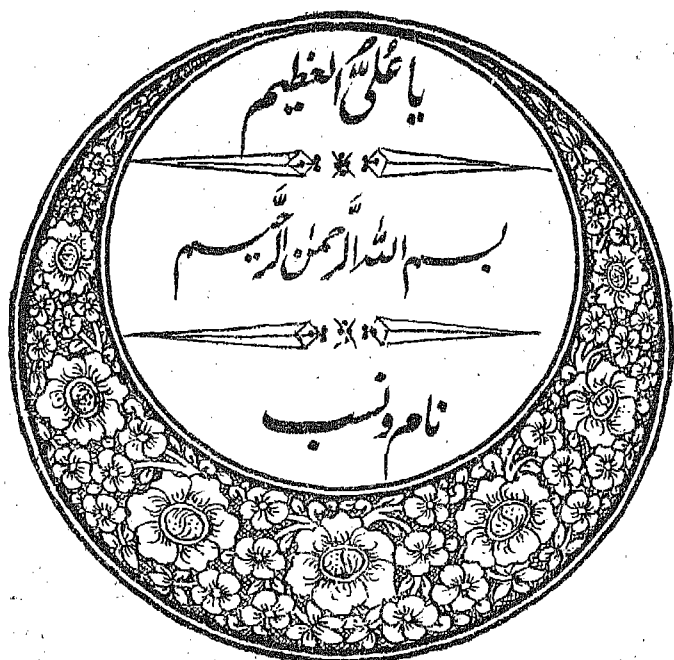 یا علیُّ العظیم
بسم اللہ الرَّحمٰن الرَّحیم
نام و نسب